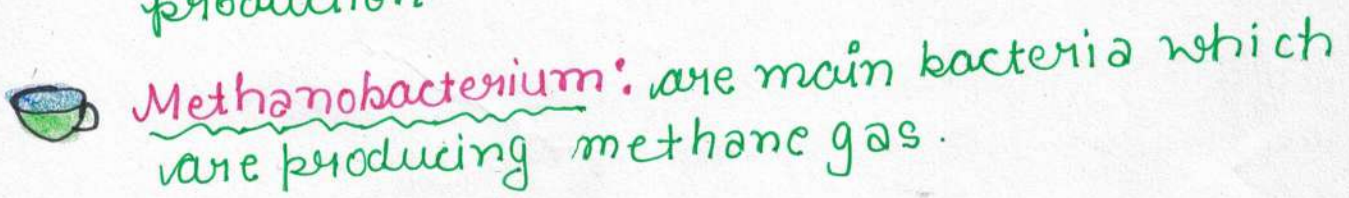 production
Methanobacterium: are main bacteria which
are producing methane gas.